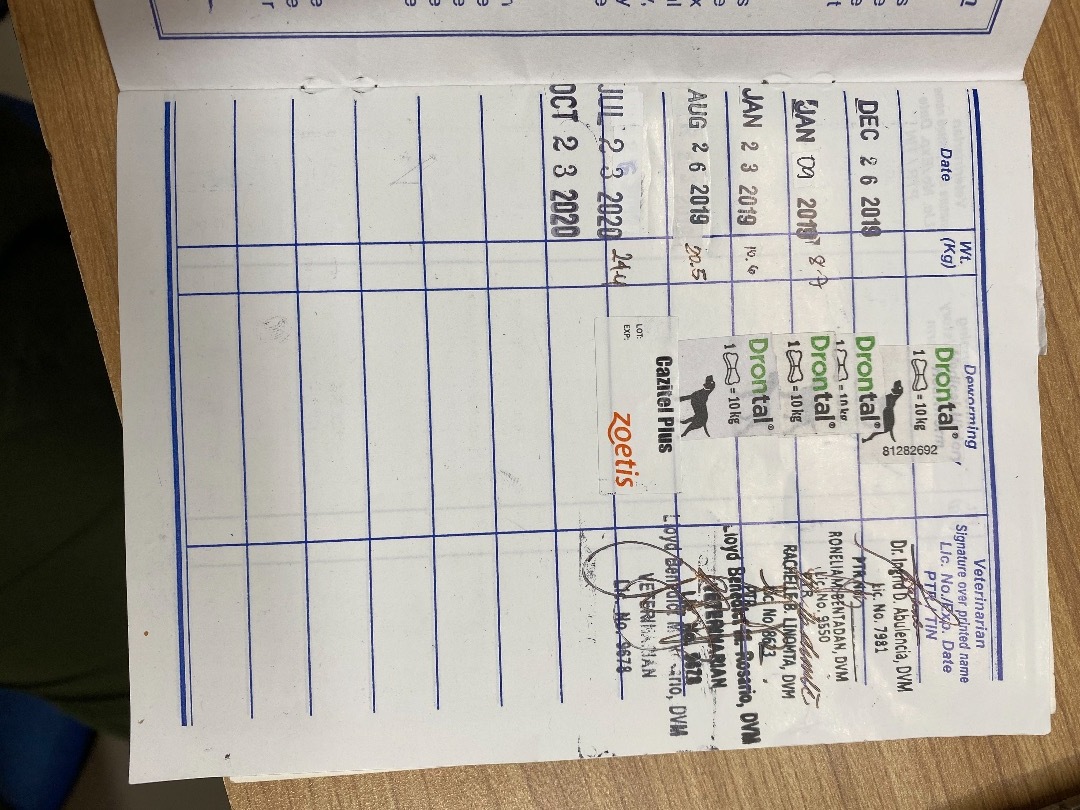 Date
Wt.
(Kg)
Deworming
Veterinarian
Signature over printed name
Lic. No./Exp. Date
PTR/TIN
DEC 26 2019
Drontal®
1 = 10 kg
81282692
Dr. Ingrid D Abulencia, DVM
Lic. No. 7981
JAN 09 2019
8.7
Drontal®
1 = 10 kg
DVM
Lic. No. 9550
JAN 23 2019
10.6
Drontal®
1 = 10 kg
RACHELLE B. LINOMTA, DVM
Lic No 8623
AUG 26 2019
20.5
Drontal®
1 = 10 kg
Lloyd Benedict M. Rosario, DVM
VETERINARIAN
Lic. No. 9678
JUL 23 2020
24.4
LOT:
EXP:
Cazitel Plus
zoetis
Lloyd Benedict DVM
VETERINARIAN
Lic. No. 9678
OCT 23 2020